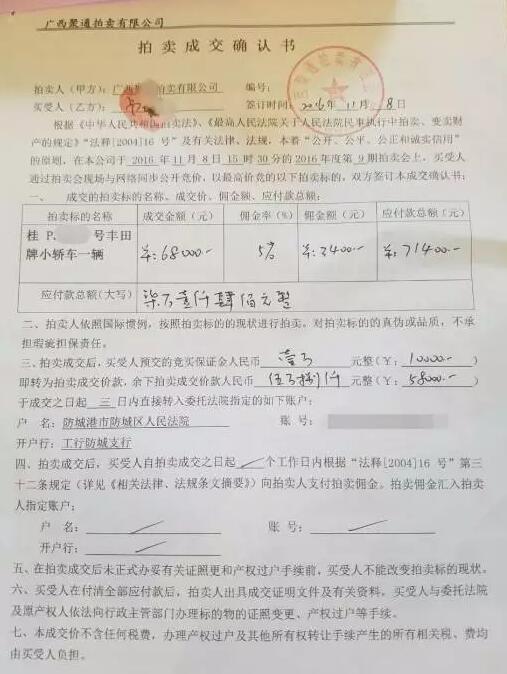 广西聚通拍卖有限公司
拍卖成交确认书
拍卖人（甲方）：广西 拍卖有限公司 编号：
买受人（乙方）： 签订时间：2016年11月8日
根据《中华人民共和 卖法》、《最高人民法院关于人民法院民事执行中拍卖、变卖财
产的规定》“法释[2004]16 号”及有关法律、法规，本着“公开、公平、公正和诚实信用”
的原则，在本公司于 2016 年 11 月 8 日 15 时 30 分的 2016 年度第 9 期拍卖会上，买受人
通过拍卖会现场与网络同步公开竞价，以最高价竞的以下拍卖标的，双方签订本成交确认书：
一、 成交的拍卖标的名称、成交价、佣金额、应付款总额：
拍卖标的名称 成交金额（元） 佣金率（%） 佣金额（元） 应付款总额（元）
桂 P. 号丰田
牌小轿车一辆 ¥：68000.- 5% ¥：3400.- ¥：71400.-
应付款总额（大写） 柒万壹仟肆佰元整
二、拍卖人依照国际惯例，按照拍卖标的的现状进行拍卖。对拍卖标的的真伪或品质，不承
担瑕疵担保责任。
三、拍卖成交后，买受人预交的竞买保证金人民币 壹万 元整（¥： 10000.- ）
即转为拍卖成交价款，余下拍卖成交价款人民币 伍万捌仟 元整（¥： 58000.- ）
于成交之日起 三 日内直接转入委托法院指定的如下账户：
户 名：防城港市防城区人民法院 账 号：
开户行：工行防城支行
四、拍卖成交后，买受人自拍卖成交之日起 个工作日内根据“法释[2004]16 号”第三
十二条规定（详见《相关法律、法规条文摘要》）向拍卖人支付拍卖佣金。拍卖佣金汇入拍卖
人指定账户：
户 名： 账 号：
开户行：
五、在拍卖成交后未正式办妥有关证照更和产权过户手续前，买受人不能改变拍卖标的现状。
六、买受人在付清全部应付款后，拍卖人出具成交证明文件及有关资料，买受人与委托法院
及原产权人依法向行政主管部门办理标的物的证照变更、产权过户等手续。
七、本成交价不含任何税费，办理产权过户及其他所有权转让手续产生的所有相关税、费均
由买受人负担。